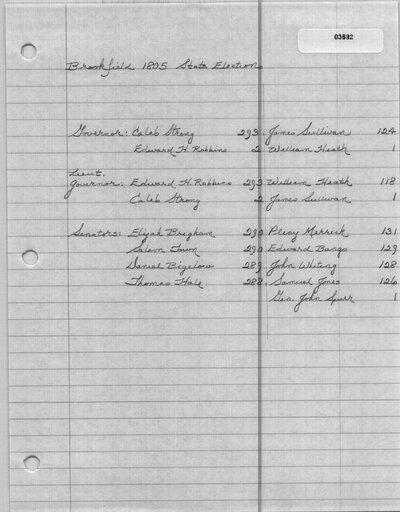 03692
Brookfield 1805 State Elections
Governor: Caleb Strong 293. James Sullivan 124
Edward H. Robbins 2 William Heath 1
Lieut.
Governor: Edward H. Robbins 293 William Heath 118
Caleb Strong 2 James Sullivan 1
Senators: Elijah Brigham 290 Pleny Merrick 131
Salem Town 290 Edward Bangs 129
Daniel Bigelow 289 John Whiting 128
Thomas Hale 288. Samuel Jones 126
Gen. John Spurr 1